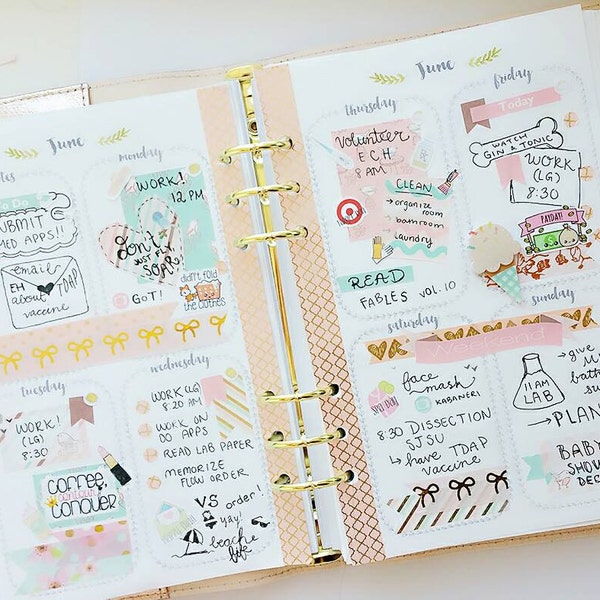 June
To Do
SUBMIT
MED APPS!!
email
EH
about TDAP
vaccine
monday
WORK!
12 PM
don't
JUST FLY,
SOAR.
GOT!
didn't fold
the clothes
tuesday
WORK!
(LG)
8:30
COFFEE,
contour
CONQUER
wednesday
WORK (LG)
8:20 AM
WORK ON
DO APPS
READ LAB PAPER
MEMORIZE
FLOW ORDER
VS order!
yay!
beach
life
June
thursday
Volunteer
ECH
8 AM
CLEAN
→ organize
room
bathroom
laundry
READ
FABLES VOL. 10
friday
Today
WATCH
GIN & TONIC
WORK
(LG)
8:30
PAYDAY!
saturday
Weekend
face
mask
spa day
KABANERI
8:30 DISSECTION
SJSU
↳ have TDAP
vaccine
sunday
11 AM
LAB
→ give
→ PLAN
BABY
SHOW
DEC